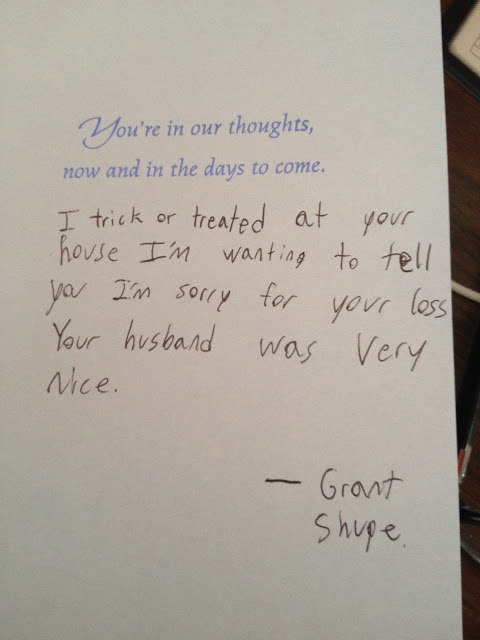 You're in our thoughts,
now and in the days to come.
I trick or treated at your
house I'm wanting to tell
you I'm sorry for your loss
Your husband was Very
Nice.
— Grant
Shupe.